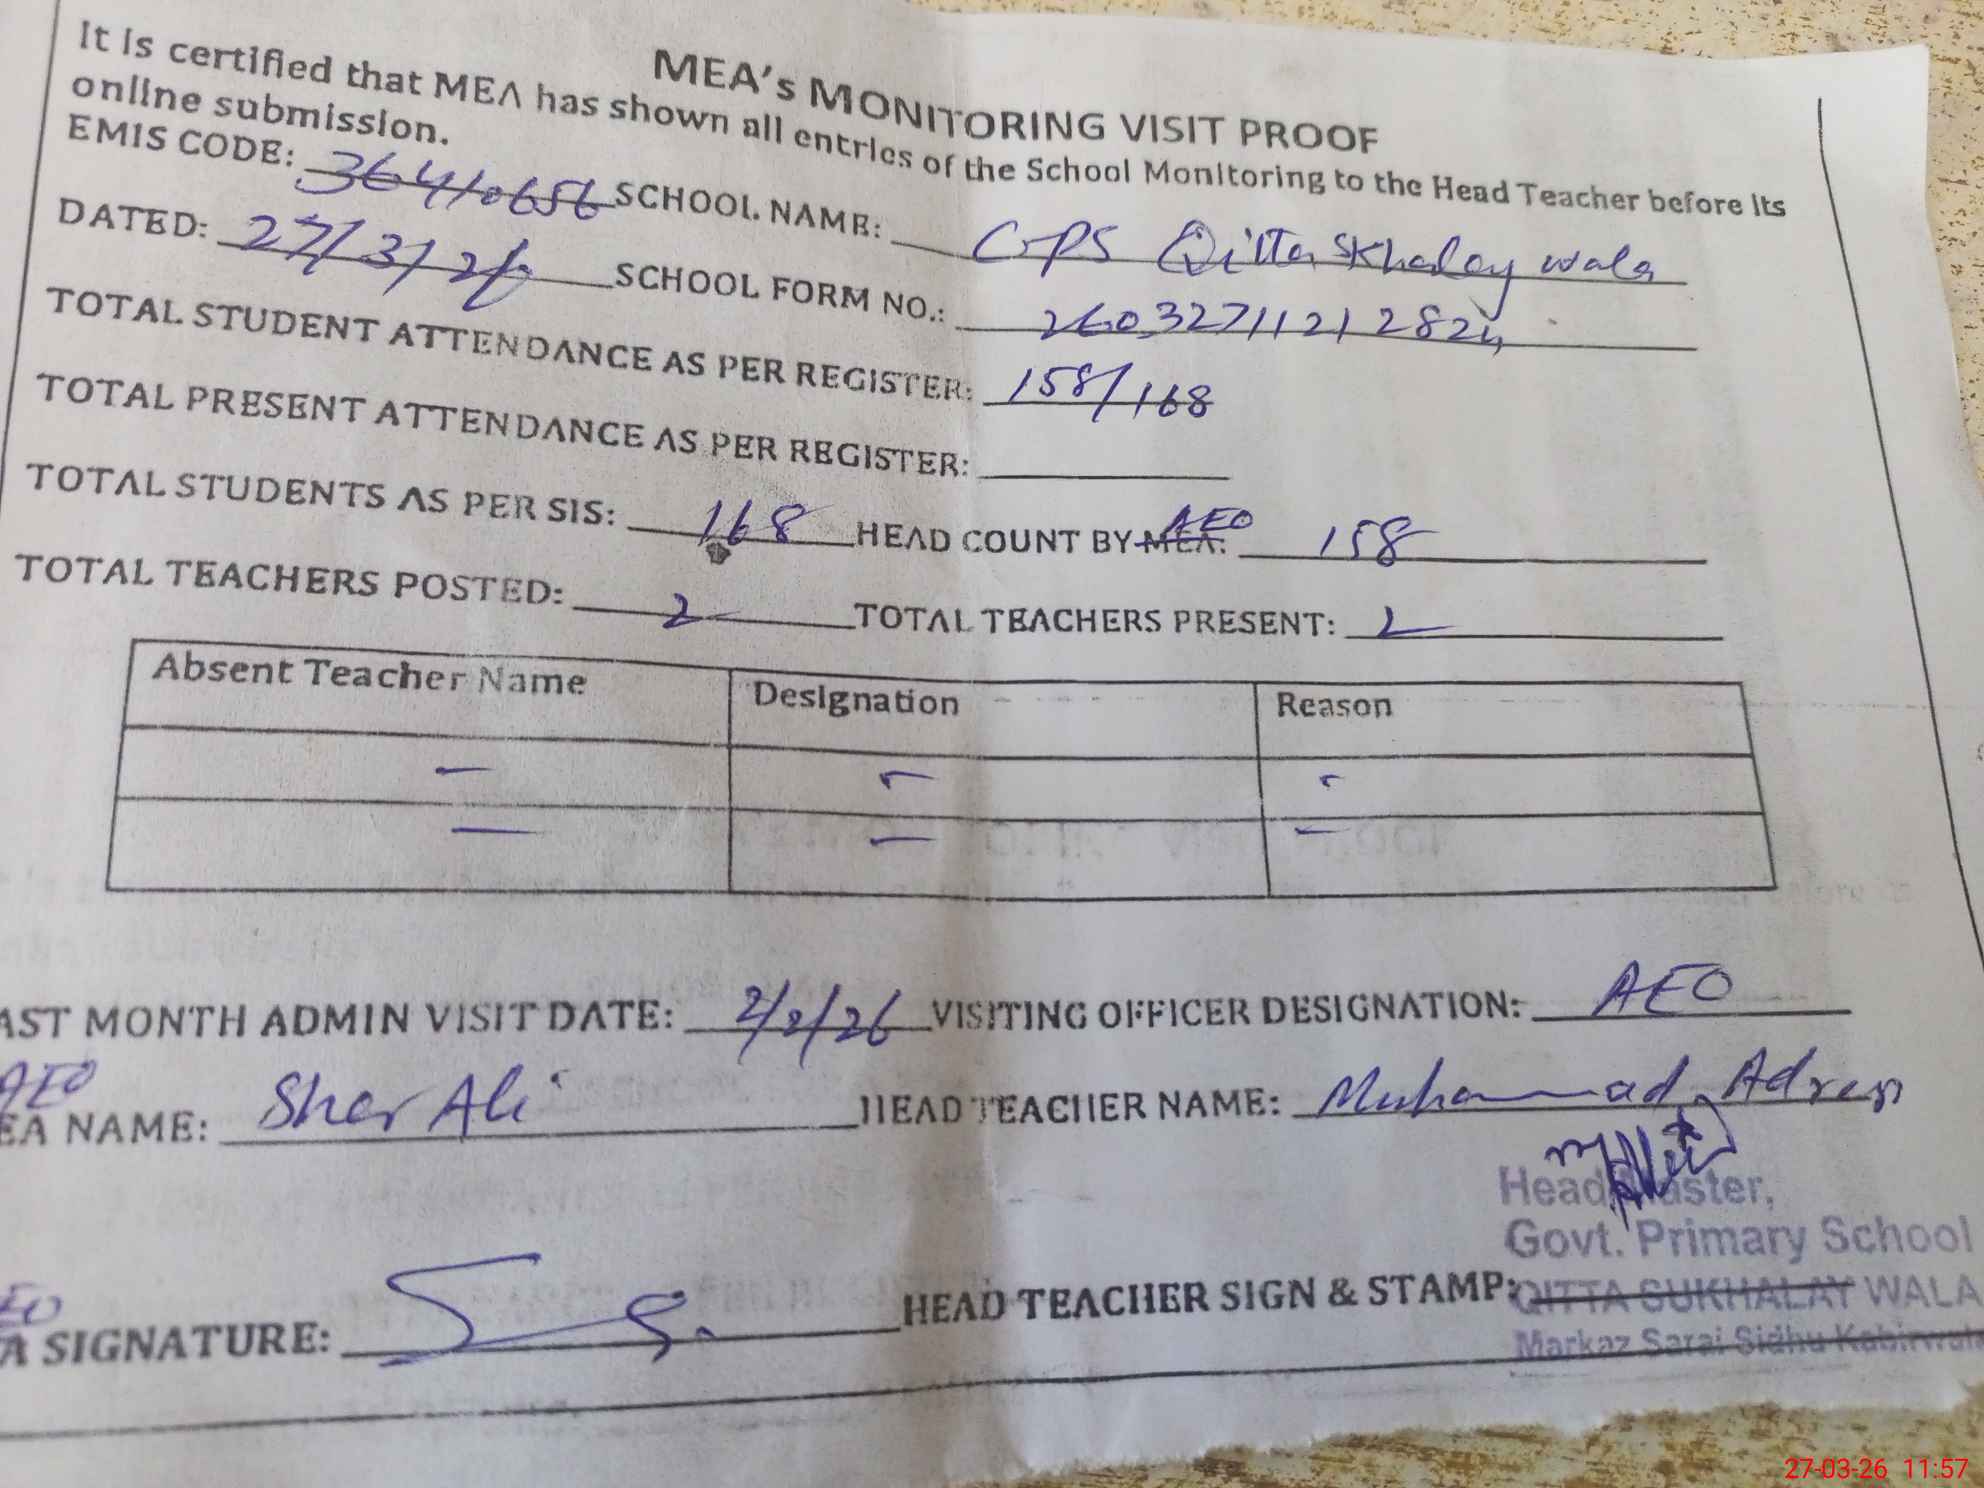 MEA's MONITORING VISIT PROOF
It is certified that MEA has shown all entries of the School Monitoring to the Head Teacher before its
online submission.
EMIS CODE: 36410656 SCHOOL NAME: GPS Qitta Skhalay wala
DATED: 27/3/26 SCHOOL FORM NO.: 2603271121282
TOTAL STUDENT ATTENDANCE AS PER REGISTER: 158/168
TOTAL PRESENT ATTENDANCE AS PER REGISTER:
TOTAL STUDENTS AS PER SIS: 168 HEAD COUNT BY MEA: AEO 158
TOTAL TEACHERS POSTED: 2 TOTAL TEACHERS PRESENT: 2
Absent Teacher Name Designation Reason
— — -
— — -
AST MONTH ADMIN VISIT DATE: 2/2/26 VISITING OFFICER DESIGNATION: AEO
AEO
EA NAME: Sher Ali HEAD TEACHER NAME: Muhammad
Head Master,
Govt. Primary School
EO
A SIGNATURE: HEAD TEACHER SIGN & STAMP: QITTA SUKHALAY WALA
Markaz Sarai Sidhu Kabirwala
27-03-26 11:57